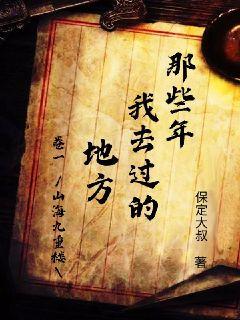 那些年
我去过的
地方
卷一／山海九重楼＼
保定大叔 著